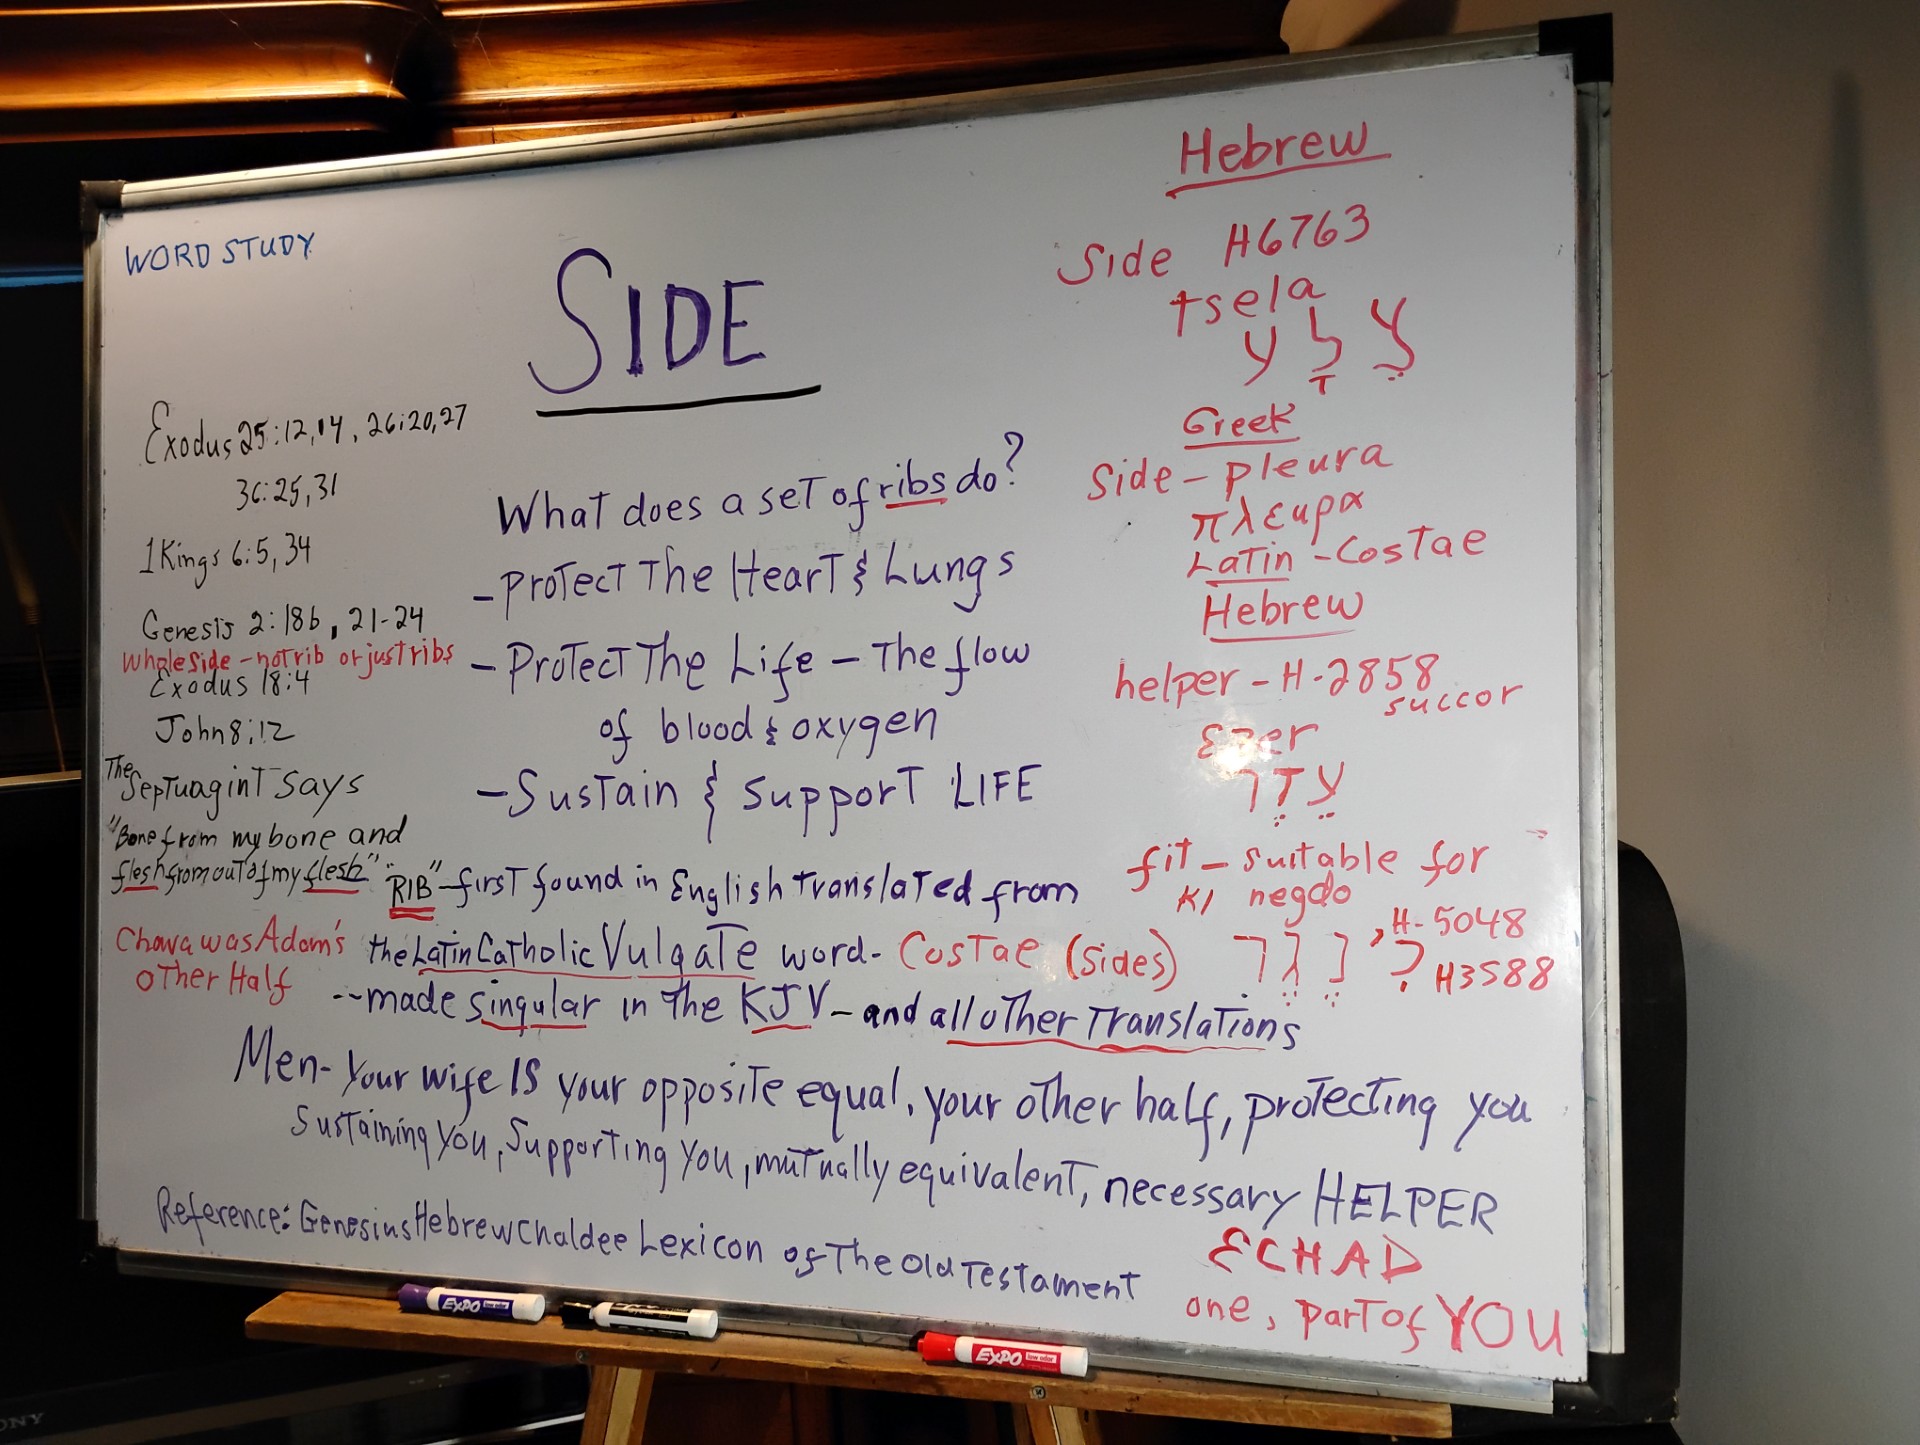 WORD STUDY
SIDE
Exodus 25:12,14, 26:20,27
36:25,31
1 Kings 6:5,34
Genesis 2:18b, 21-24
Whole side - not rib or just ribs
Exodus 18:4
John 8:12
The Septuagint says
"Bone from my bone and
flesh from out of my flesh"
Chava was Adam's
other Half
What does a set of ribs do?
- Protect The Heart & Lungs
- Protect The Life - The flow
of blood & oxygen
- Sustain & Support LIFE
"RIB" - first found in English translated from
the Latin Catholic Vulgate word - Costae (sides)
-- made singular in the KJV - and all other Translations
Men - Your wife IS your opposite equal, your other half, protecting you
Sustaining You, Supporting You, mutually equivalent, necessary HELPER
Reference: Genesius Hebrew Chaldee Lexicon of The Old Testament
Hebrew
Side H6763
tsela
צֵלָע
Greek
Side - pleura
πλευρα
Latin - Costae
Hebrew
helper - H-2858
succor
Ezer
fit - suitable for
KI negdo
H-5048
H3588
ECHAD
one, part of YOU
EXPO low odor
EXPO low odor